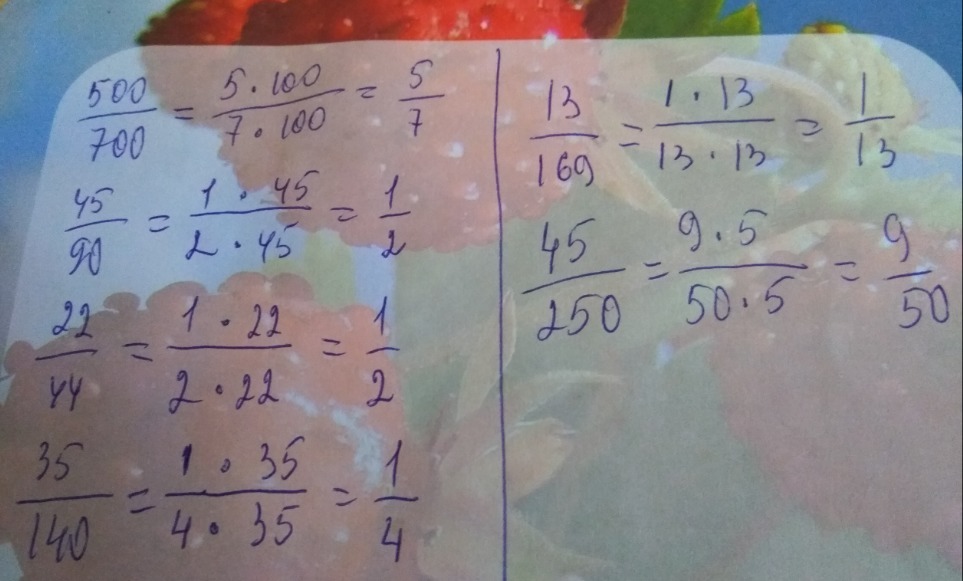 500/700 = 5·100/7·100 = 5/7
45/90 = 1·45/2·45 = 1/2
22/44 = 1·22/2·22 = 1/2
35/140 = 1·35/4·35 = 1/4
13/169 = 1·13/13·13 = 1/13
45/250 = 9·5/50·5 = 9/50